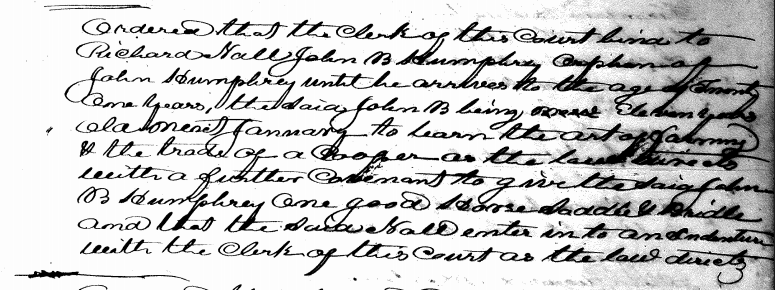 Ordered that the Clerk of this Court bind to
Richard Hall John B Humphrey Orphan of
John Humphrey until he arrives to the age of Twenty
One Years, the said John B being Eleven Years
old next January to learn the art of Farming
& the trade of a Cooper as the law directs
with a further Covenant to give the said John
B Humphrey One good Horse Saddle & Bridle
and that the said Hall enter in to an Indenture
with the Clerk of this Court as the law directs